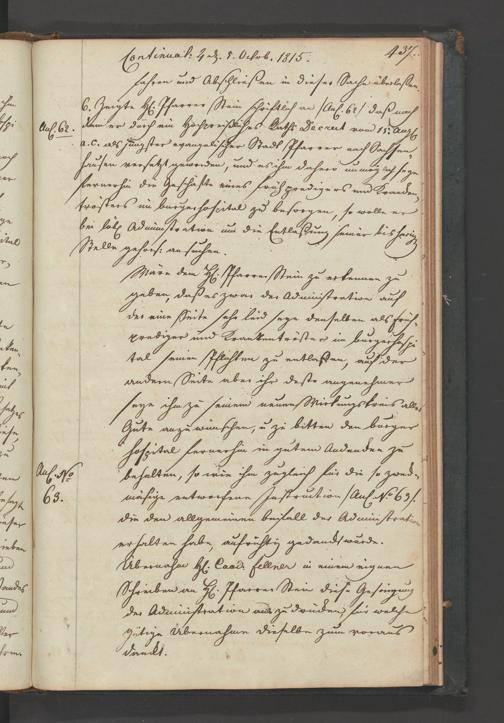 Continuat: 4 d. 5. Octob. 1815.
437.
fahren und Abschließen in dieser Sache überlassen.
Anl. 62.
6. Zeigte H. Pfarrer Stein schriftlich an (Anl. 62) daß nach
dem er durch ein Hochpreißliches Raths Decret vom 15. Aug.
a. c. als jüngster evangelischer Stadt Pfarrer nach Sachsen
hausen versetzt geworden, und es ihm daher unmöglich seye
fernerhin die Geschäfte eines Frühpredigers und Kranken
trösters im Burgerhospital zu besorgen, so wolle er
bei löbl. Administration um die Entlaßung seiner bisherig.
Stelle gehors. ansuchen.
Wäre dem H. Pfarrer Stein zu erkennen zu
geben, daß es zwar der Administration auf
der eine Seite sehr leid seye denselben als Früh-
prediger und Krankentröster im Burgerhospi
tal seiner Pflichten zu entlaßen, auf der
andern Seite aber ihr desto angenehmer
seye ihm zu seinem neuen Wirkungskreis alles
Gute anzuwünschen, u. zu bitten den Burger
hospital fernerhin in gutem Andenken zu
Anl. No
63.
behalten, so wie ihm zugleich für die so zweck-
mäsige entworfene Instruction (Anl. No 63).
die den allgemeinen Beifall der Administration
erhalten habe, aufrichtig gedankt würde.
Übernahm H. Cand. Fellner in einem eignen
Schreiben an H. Pfarrer Stein diese Gesinnung
der Administration auszudrücken, für welche
gütige Übernahme dieselbe zum voraus
dankt.